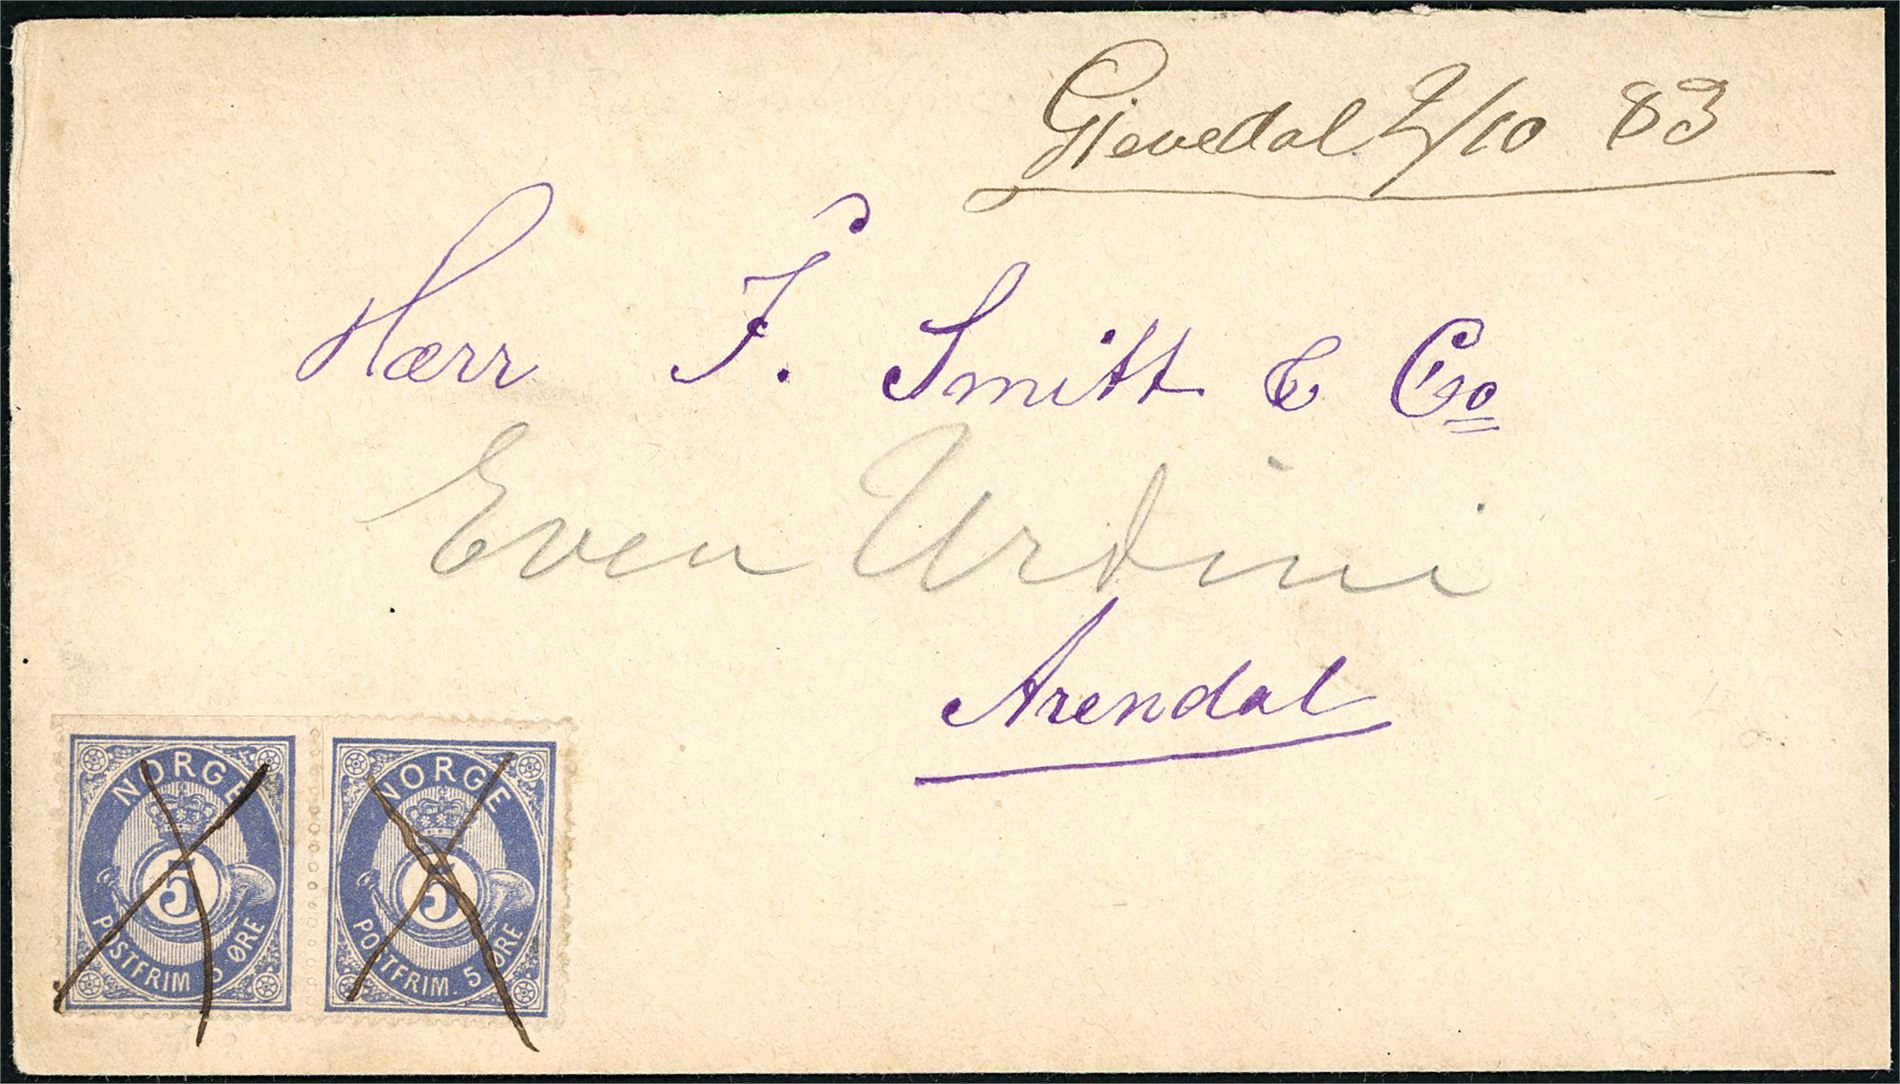 Gievedal 2/10 83
Hærr F. Smitt & Co
Even
Arendal
NORGE
5
POSTFRIM 5 ØRE
NORGE
5
POSTFRIM. 5 ØRE